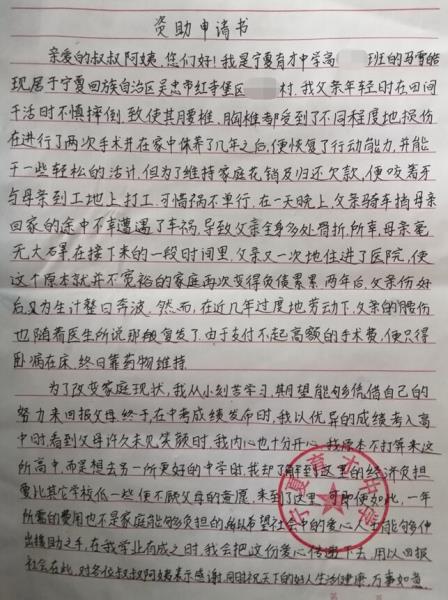 资助申请书
亲爱的叔叔阿姨,您们好!我是宁夏育才中学高 班的马雪皓
现居于宁夏回族自治区吴忠市红寺堡区 村,我父亲年轻时在田间
干活时不慎摔倒,致使其腰椎,胸椎都受到了不同程度地损伤
在进行了两次手术并在家中休养了几年之后,便恢复了行动能力,并能
干一些轻松的活计,但为了维持家庭花销及归还欠款,便咬着牙
与母亲到工地上打工,可惜祸不单行,在一天晚上,父亲骑车捎母亲
回家的途中不幸遭遇了车祸,导致父亲全身多处骨折,所幸,母亲毫
无大碍在接下来的一段时间里,父亲又一次地住进了医院,使
这个原本就并不宽裕的家庭再次变得负债累累,两年后,父亲伤好
后又为生计整日奔波,然而,在近几年过度地劳动下,父亲的腰伤
也随着医生所说那般复发了,由于支付不起高额的手术费,便只得
卧病在床,终日靠药物维持.
为了改变家庭现状,我从小刻苦学习,期望能够凭借自己的
努力来回报父母,终于,在中考成绩发布时,我以优异的成绩考入高
中时看到父母许久未见笑颜时,我内心也十分开心,我原本不打算来这
所高中,而是想去另一所更好的中学时我却了解到这里的经济负担
要比其它学校低一些便不顾父母的意愿,来到了这里,可即便如此,一年
所需的费用也不是家庭能够负担的,所以希望社会中的爱心人士能够伸
出援助之手,在我学业有成之时,我会把这份爱心传递下去,用以回报
社会在此,对各位叔叔阿姨表示感谢,同时祝天下的好人生活健康,万事如意.
宁夏育才中学